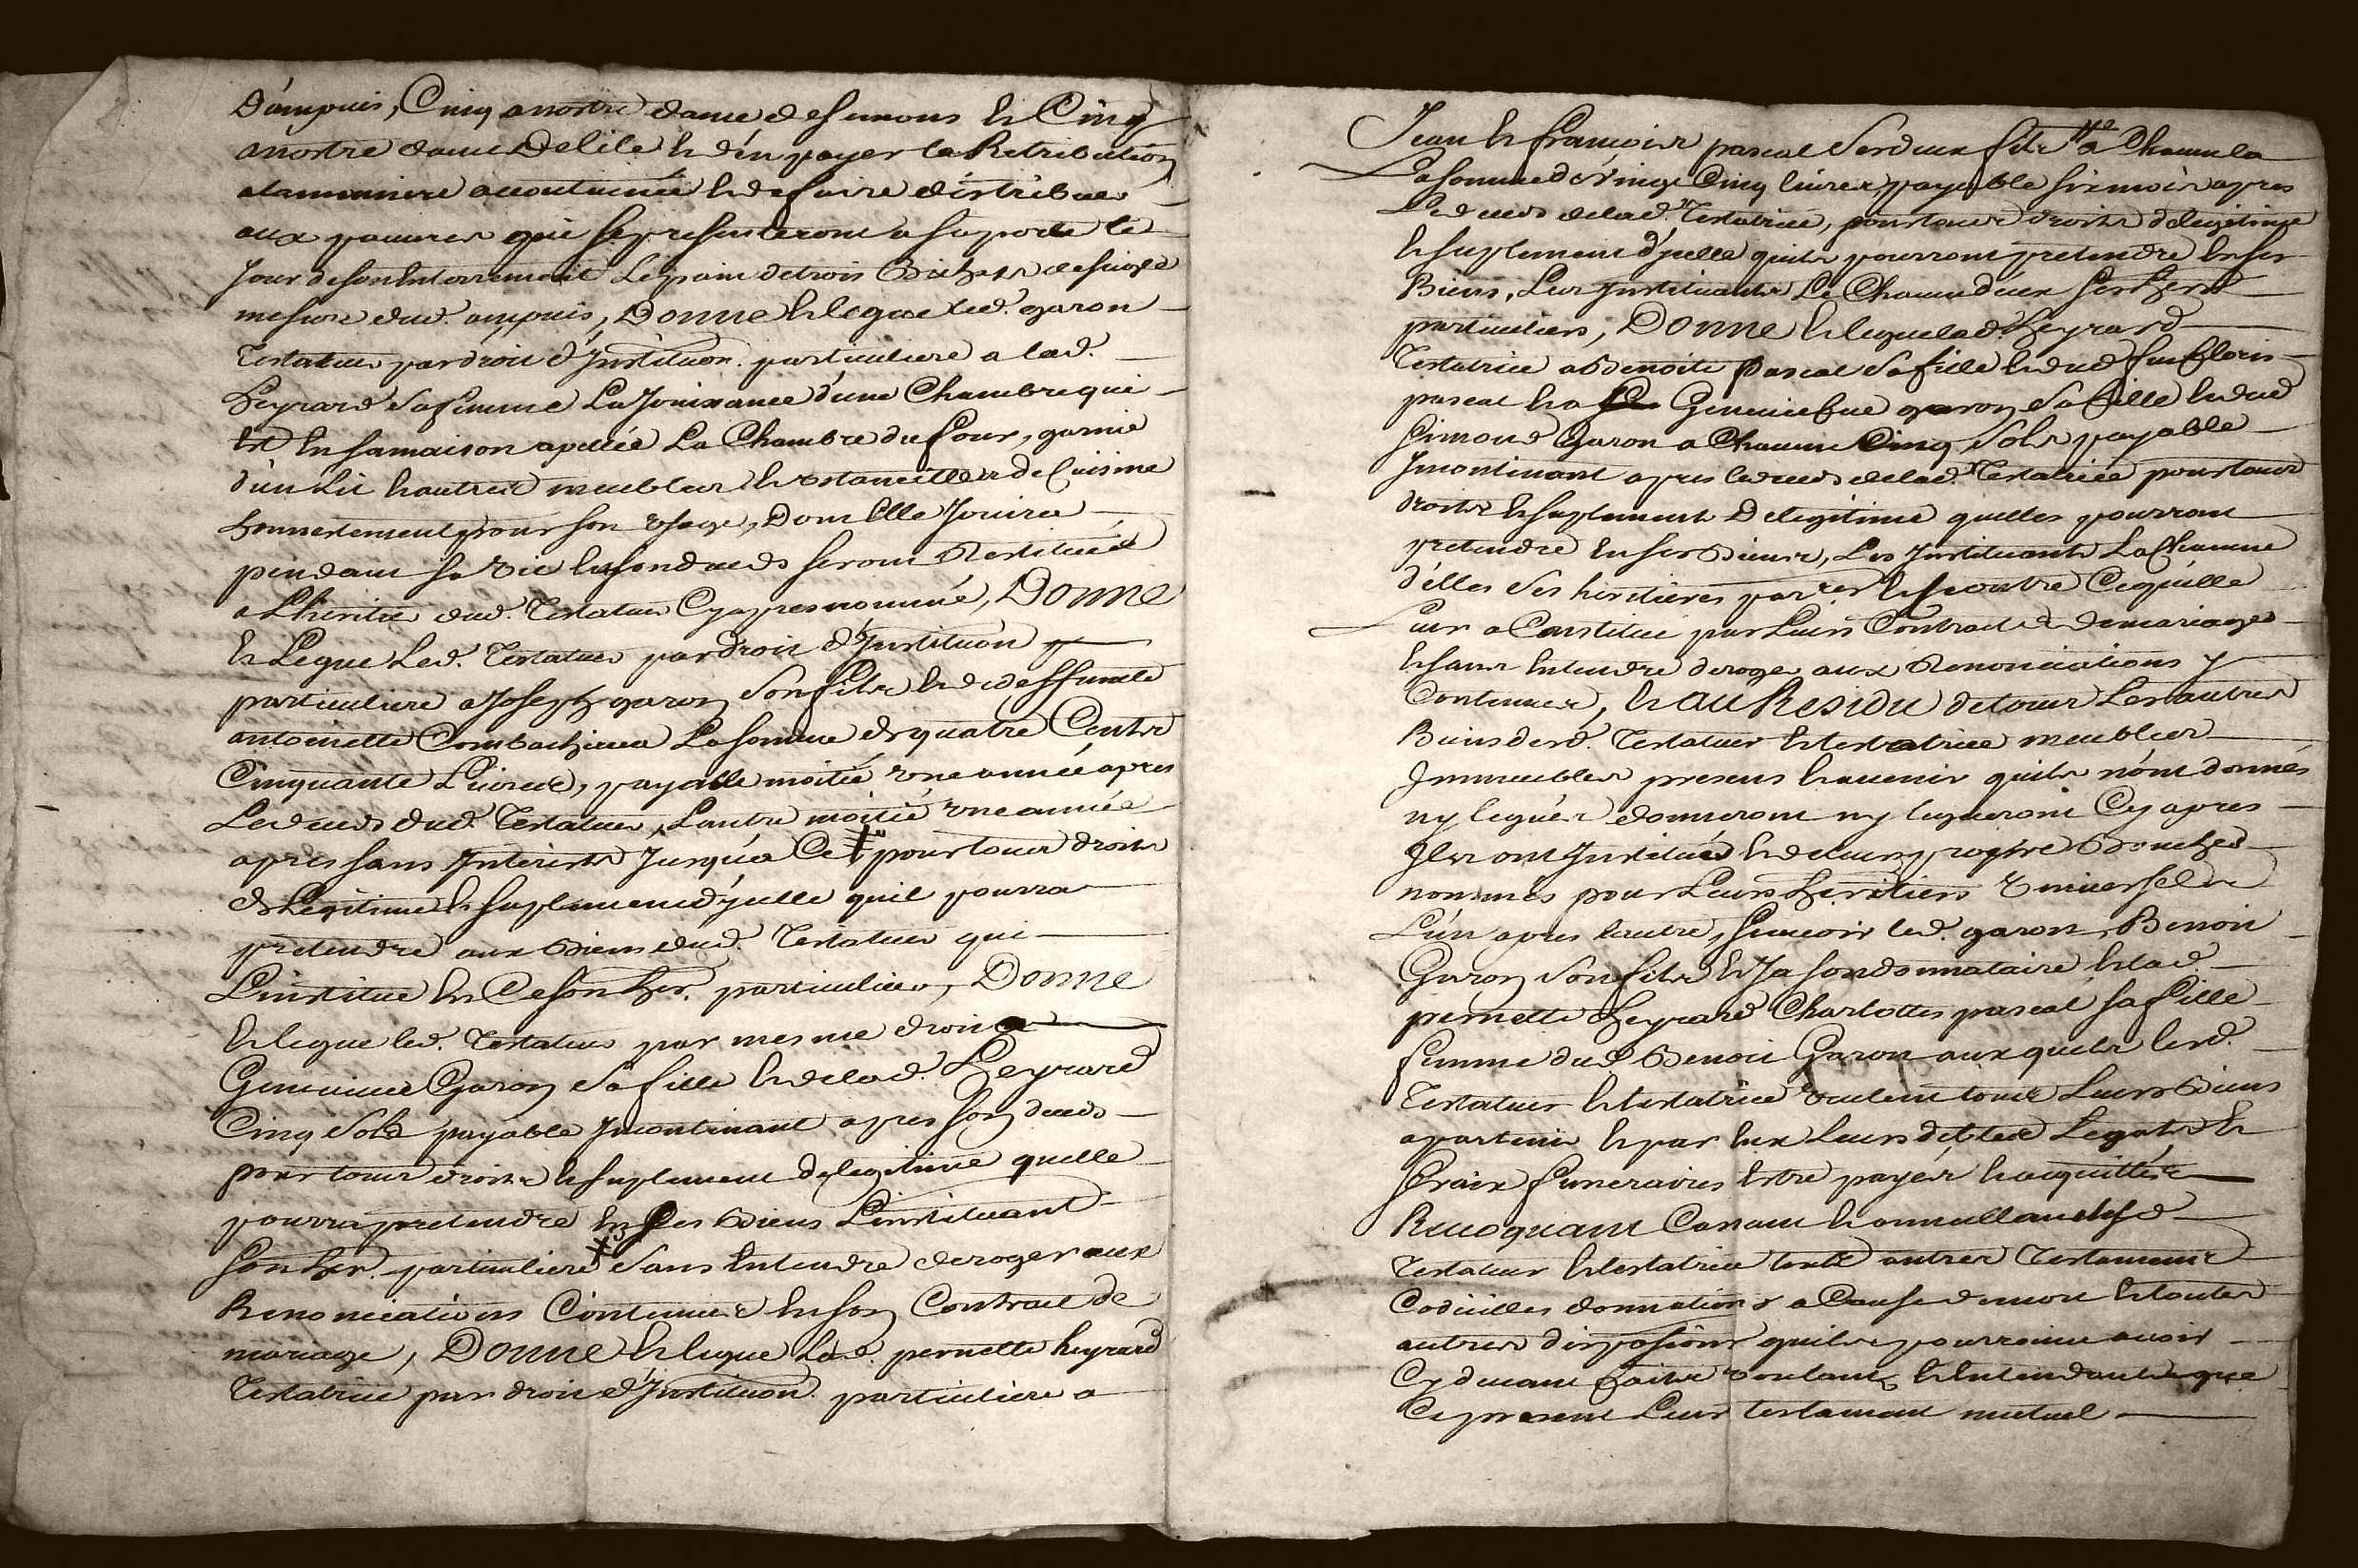 D'ampuis, Cinq a nostre dame de Semons et Cinq
a nostre dame Delile et d'en payer la Retribution
a la maniere accoutumée et de faire distribuer
aux pauvres qui se presenteront a sa porte le
Jour de son Enterrement le pain de trois Bichets de seigle
mesure dud. ampuis, Donne et legue led. garon
Testateur par droit d'Jnstituõn. particuliere a lad.
heyrard sa femme La Jouissance d'une Chambre qui
Est En sa maison apellée La Chambre du four, garnie
d'un Lit et autres meubles et Ustancilles de Cuisine
honnestement pour son Usage, Dont Elle Jouira
pendant sa Vie et a son deceds seront Restitués
a L'heritier dud. Testateur Cy apres nommé, Donne
et Legue Led. Testateur par droit d'Jnstituõn
particuliere a Joseph garon son fils et de deffunte
antoinette La somme de quatre Cents
Cinquante Livres, payable moitié Une année apres
Le deceds dud. Testateur, L'autre moitié Une année
apres sans Jnterests Jusqu'a Ce + pour tous droits
de Legitime et suplement d'ycelle quil pourra
pretendre aux Biens dud. Testateur qui
L'institue En Ce son her. particulier, Donne
et legue led. Testateur par mesme droit a
Genevieve Garon sa fille et de lad. heyrard
Cinq Sols payable Jncontinant apres son deceds
pour tous droits et suplement de legitime quelle
pourra pretendre En ses Biens L'instituant
son her. particuliere + sans Entendre deroger aux
Renonciations Contenues En son Contract de
mariage, Donne et legue Lad. pernette heyrard
Testatrice par droit d'Jnstituõn. particuliere a
Jean et françois pascal ses deux fils a Chacun la
La somme de Vingt Cinq livres payable six mois apres
Le deceds de lad. Testatrice, pour tous droits de legitime
et suplement d'ycelle quils pourront pretendre En ses
Biens, Les Jnstituants Le Chacun d'eux ses hers
particuliers, Donne et legue lad. heyrard
Testatrice a Benoite Pascal sa fille et dud feu
pascal et a Geneviefve garon sa fille et dud
Simond Garon a Chacune Cinq Sols payable
Jncontinant apres le deceds de lad. Testatrice pour tous
droits et suplement De legitime quelles pourront
pretendre En ses Biens, Les Jnstituants La Chacune
d'elles ses heritieres par.res et outre Ce qu'elle
Leur a Constitué par Leurs Contracts de mariage
et sans Entendre deroger aux Renonciations y
Contenues, Et au Residu de tous Les autres
Biens desd. Testateur et testatrice meubles
Jmmeubles presens et avenir quils n'ont donnés
ny legués donneront ny legueront Cy apres
Jls ont Jnstitués et de leurs propre Bouches
nommés pour Leurs heritiers Universels
L'un apres lautre, scavoir led. garon, Benoit
Garon son fils et Ja son donnataire et lad.
pernette heyrard Charlotte pascal sa fille
femme dud Benoit Garon aux quels lesd.
Testateur et testatrice Veulent tous Leurs Biens
apartenir et par Eux Leurs debtes Legats et
fraix funeraires Estre payés et acquittés
Revoquant Cassant et annullant lesd
Testateur et testatrice touts autres Testaments
Codicilles donnations a Cause de mort et toutes
autres disposiõns quils pourroient avoir
Cy devant faits Voulants et Entendants que
Ce present Leur testament mutuel